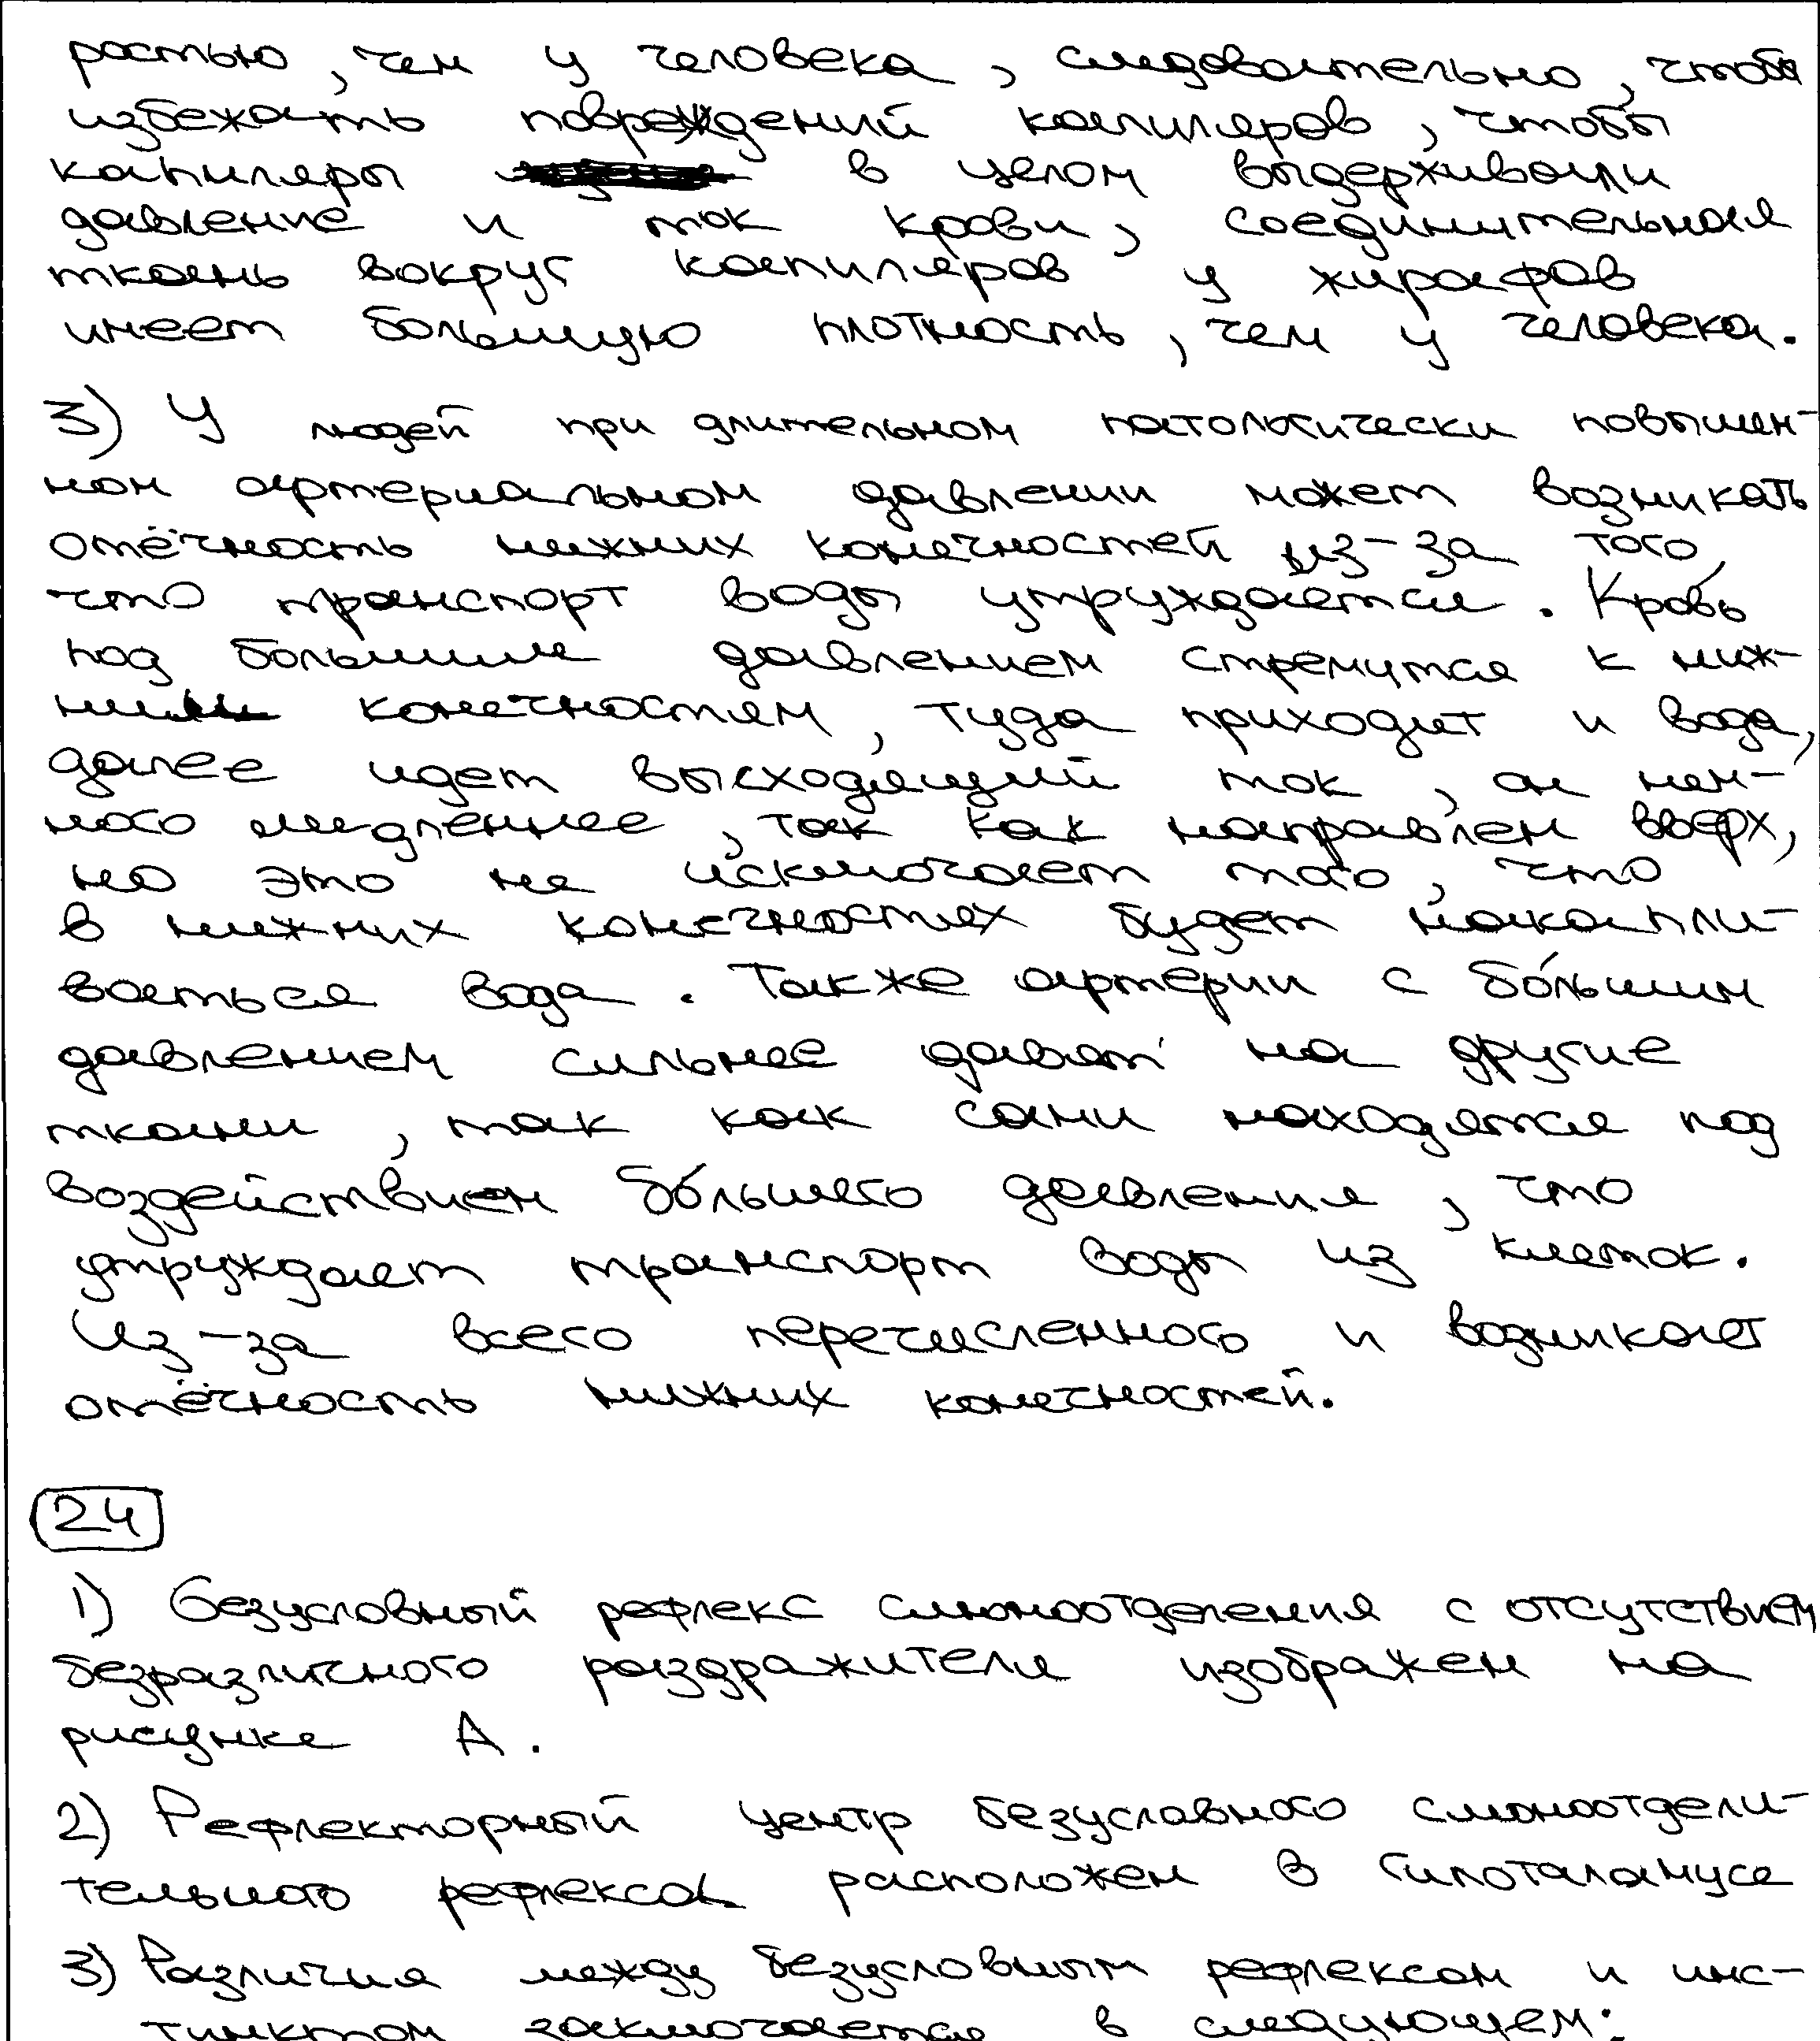 ростью, чем у человека, следовательно, чтобы
избежать повреждений капиляров, чтобы
капиляры в целом выдерживали
давление и ток крови, соединительная
ткань вокруг капиляров у жирафов
имеет большую плотность, чем у человека.
3) У людей при длительном патологически повышен-
ном артериальном давлении может возникать
отёчность нижних конечностей из-за того,
что транспорт воды утруждается. Кровь
под большим давлением стремится к ниж-
ним конечностям, туда приходит и вода,
далее идет высходящий ток, он нем-
ного медленнее, так как направлен вверх,
но это не исключает того, что
в нижних конечностях будет накапли-
ваться вода. Также артерии с бо́льшим
давлением сильнее давят на другие
ткани, так как сами находятся под
воздействием бо́льшего давления, что
утруждает транспорт воды из клеток.
Из-за всего перечисленного и возникает
отёчность нижних конечностей.
24
1) Безусловный рефлекс слюноотделения с отсутствием
безразличного раздражителя изображен на
рисунке А.
2) Рефлекторный центр безуславного слюноотдели-
тельного рефлекса расположен в гипоталамусе
3) Различия между безусловным рефлексом и инс-
тинктом заключается в следующем: